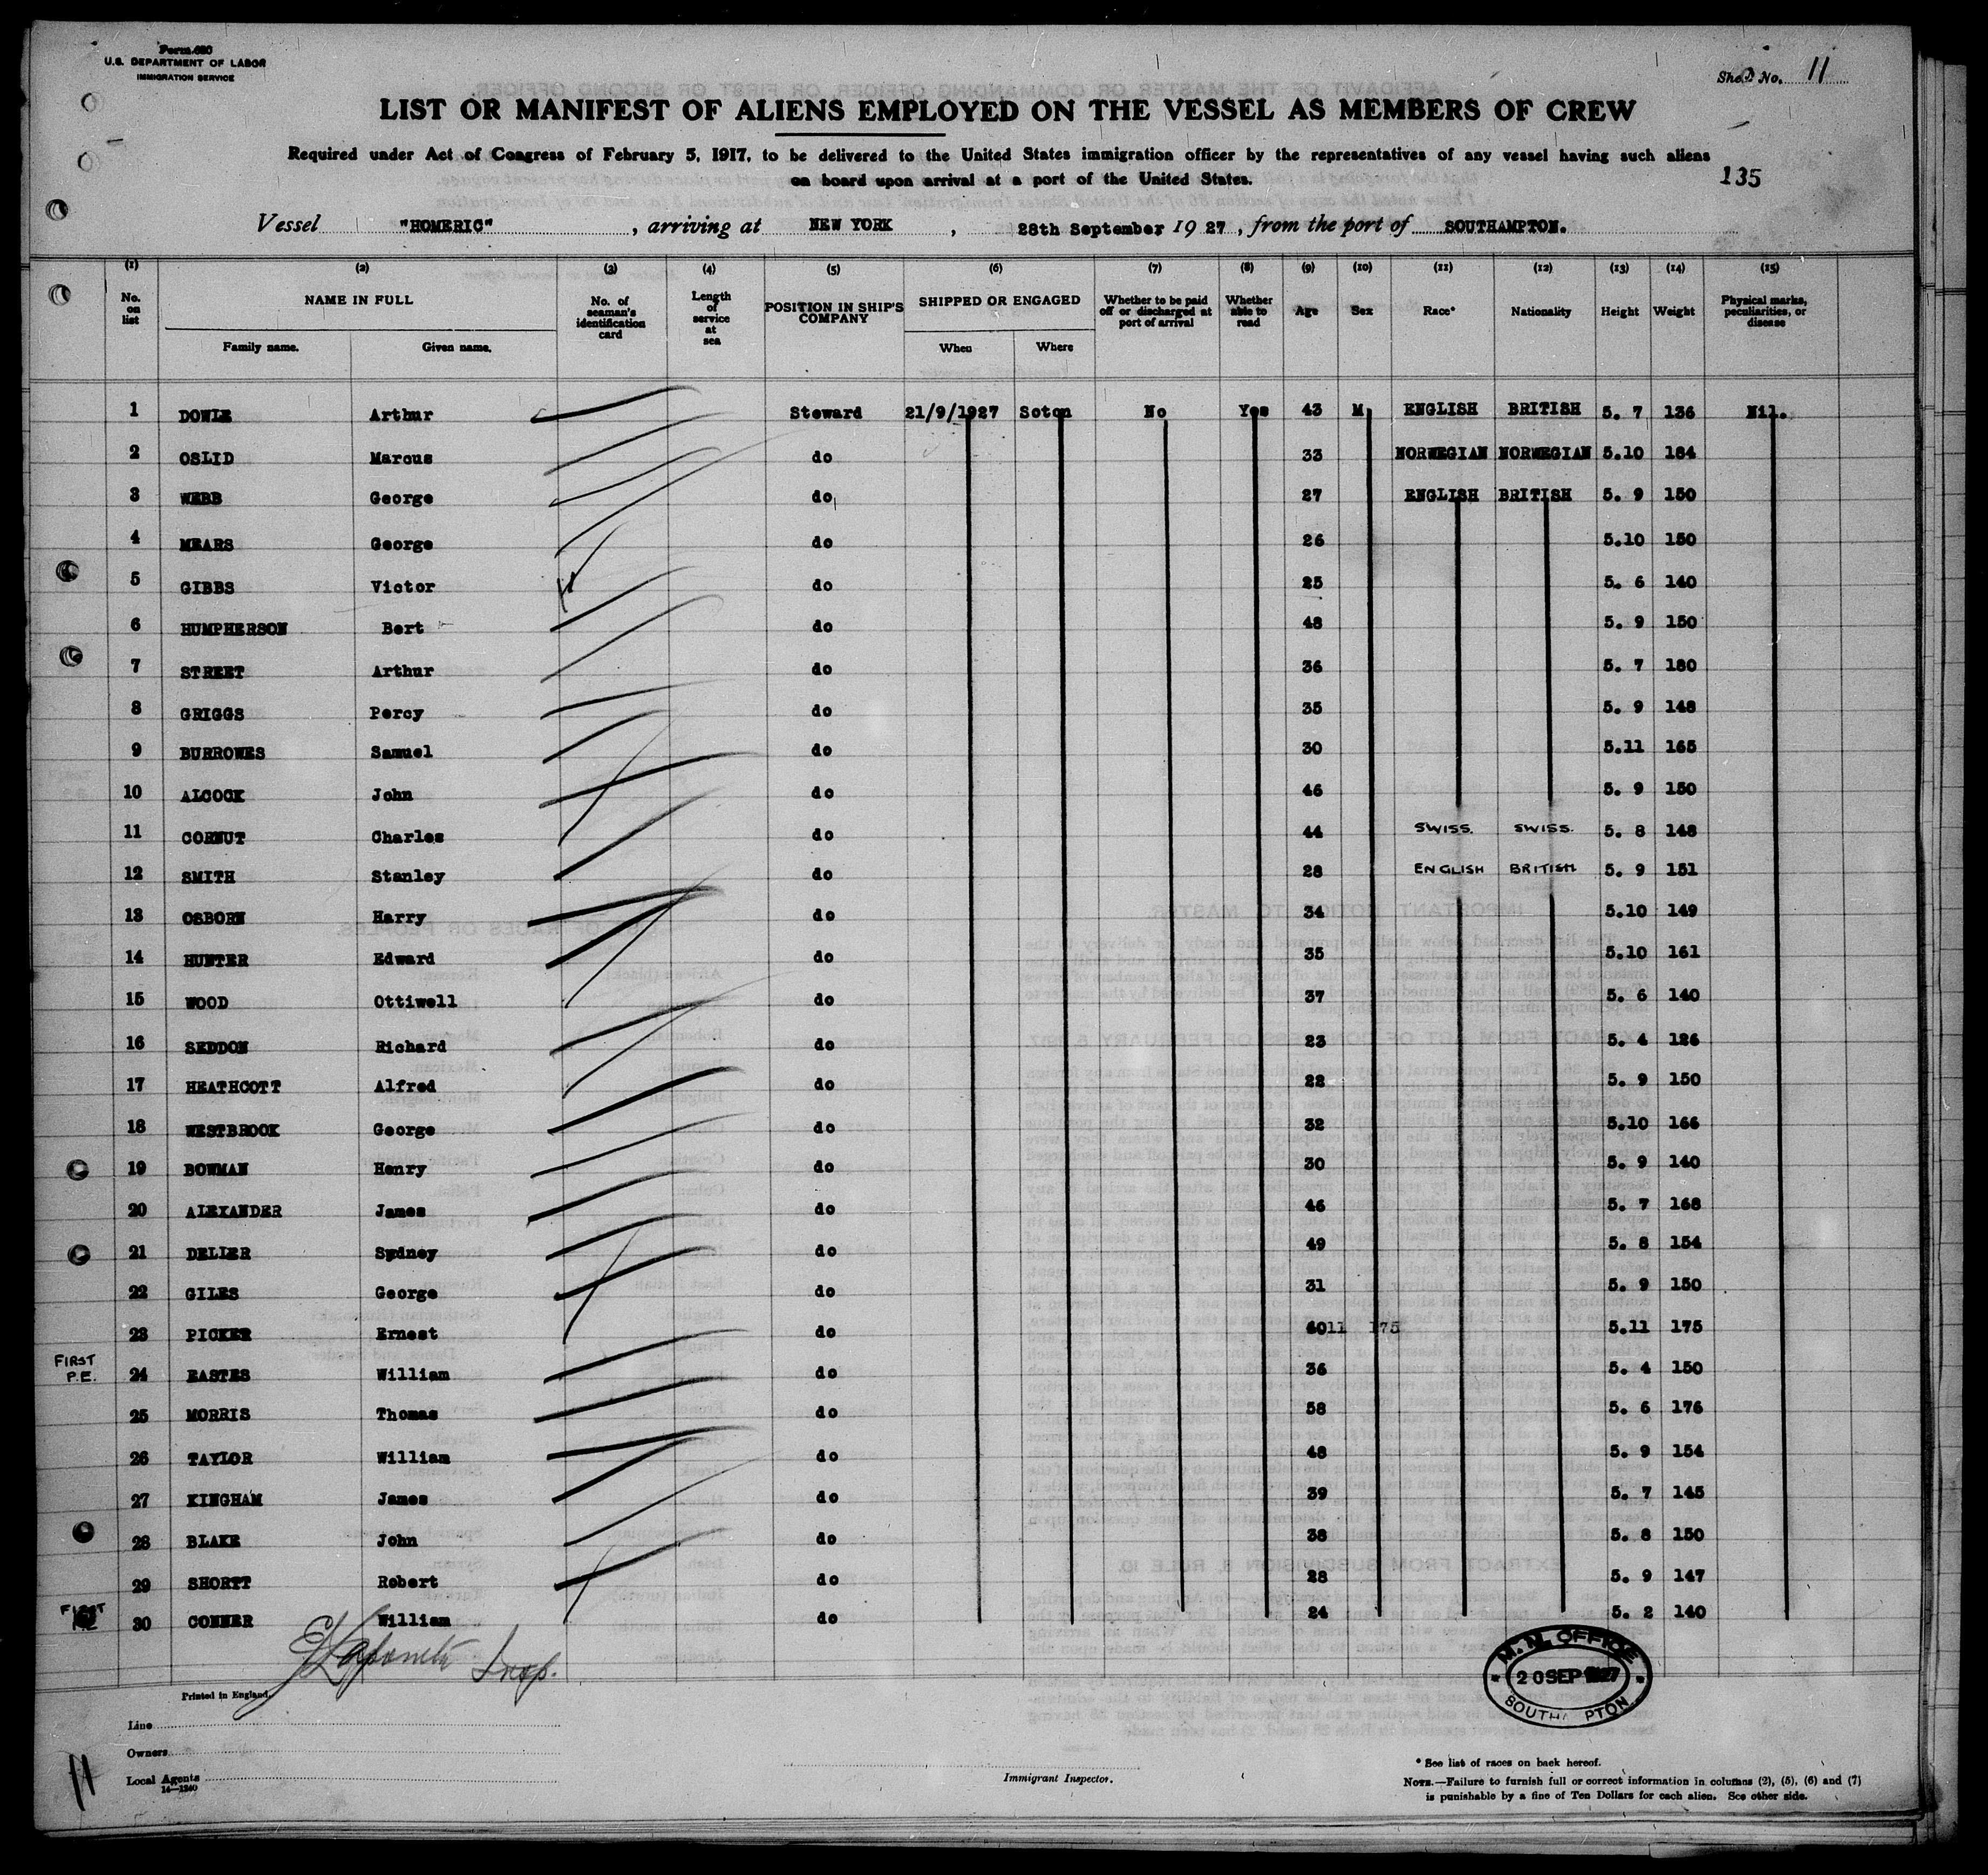 Form 680
U.S. DEPARTMENT OF LABOR
IMMIGRATION SERVICE
Sheet No. 11
LIST OR MANIFEST OF ALIENS EMPLOYED ON THE VESSEL AS MEMBERS OF CREW
Required under Act of Congress of February 5, 1917, to be delivered to the United States immigration officer by the representatives of any vessel having such aliens
on board upon arrival at a port of the United States.
135
Vessel "HOMERIC", arriving at NEW YORK, 28th September 1927, from the port of SOUTHAMPTON.
(1) (2) (3) (4) (5) (6) (7) (8) (9) (10) (11) (12) (13) (14) (15)
No. on list NAME IN FULL No. of seaman's identification card Length of service at sea POSITION IN SHIP'S COMPANY SHIPPED OR ENGAGED Whether to be paid off or discharged at port of arrival Whether able to read Age Sex Race* Nationality Height Weight Physical marks, peculiarities, or disease
Family name. Given name. When Where
1 DOWLE Arthur Steward 21/9/1927 Soton No Yes 43 M ENGLISH BRITISH 5. 7 136 Nil.
2 OSLID Marcus do 33 NORWEGIAN NORWEGIAN 5.10 184
3 WEBB George do 27 ENGLISH BRITISH 5. 9 150
4 MEARS George do 26 5.10 150
5 GIBBS Victor do 25 5. 6 140
6 HUMPHERSON Bert do 48 5. 9 150
7 STREET Arthur do 36 5. 7 180
8 GRIGGS Percy do 35 5. 9 148
9 BURROWES Samuel do 30 5.11 165
10 ALCOCK John do 46 5. 9 150
11 CORNUT Charles do 44 SWISS. SWISS. 5. 8 148
12 SMITH Stanley do 28 ENGLISH BRITISH 5. 9 151
13 OSBORN Harry do 34 5.10 149
14 HUNTER Edward do 35 5.10 161
15 WOOD Ottiwell do 37 5. 6 140
16 SEDDON Richard do 23 5. 4 126
17 HEATHCOTT Alfred do 22 5. 9 150
18 WESTBROOK George do 32 5.10 166
19 BOWMAN Henry do 30 5. 9 140
20 ALEXANDER James do 46 5. 7 168
21 DELIER Sydney do 49 5. 8 154
22 GILES George do 31 5. 9 150
23 PICKER Ernest do 175 5.11 175
FIRST P.E. 24 EASTES William do 36 5. 4 150
25 MORRIS Thomas do 58 5. 6 176
26 TAYLOR William do 48 5. 9 154
27 KINGHAM James do 39 5. 7 145
28 BLAKE John do 38 5. 8 150
29 SHORTT Robert do 28 5. 9 147
FIRST 30 CONNER William do 24 5. 2 140
Insp.
M.M. OFFICE
20 SEP 1927
SOUTHAMPTON
Printed in England.
Line
Owners
Local Agents
14—1240
11
Immigrant Inspector.
* See list of races on back hereof.
NOTE.—Failure to furnish full or correct information in columns (2), (5), (6) and (7)
is punishable by a fine of Ten Dollars for each alien. See other side.